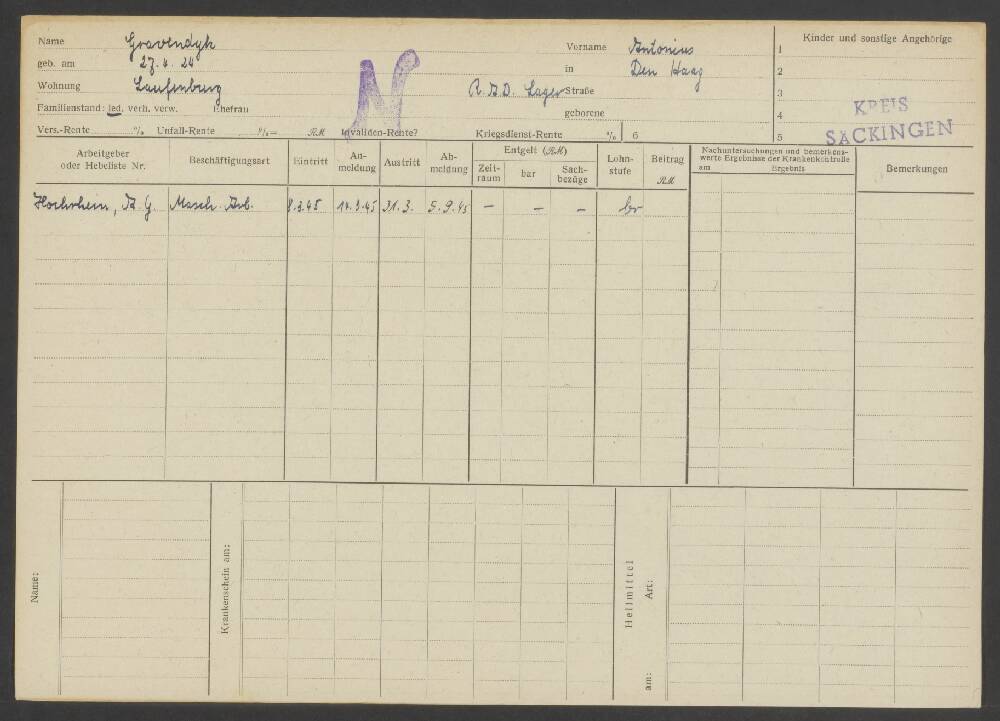 Name Gravendyk Vorname Antonius
geb. am 27.4.24 in Den Haag
Wohnung Laufenburg R.A.D. Lager Straße
Familienstand: led. verh. verw. Ehefrau geborene
Vers.-Rente % Unfall-Rente %= RM Invaliden-Rente? Kriegsdienst-Rente %
N
Kinder und sonstige Angehörige
1
2
3
4
5
6
KREIS
SÄCKINGEN
Arbeitgeber
oder Hebeliste Nr.
Beschäftigungsart
Eintritt
An-
meldung
Austritt
Ab-
meldung
Entgelt (RM)
Zeit-
raum
bar
Sach-
bezüge
Lohn-
stufe
Beitrag
RM
Nachuntersuchungen und bemerkens-
werte Ergebnisse der Krankenkontrolle
am Ergebnis
Bemerkungen
Hochrhein, A.G. Masch. Arb. 8.3.45 14.3.45 31.3. 5.9.45 – – –
Name:
Krankenschein am:
Heilmittel
Art:
am: